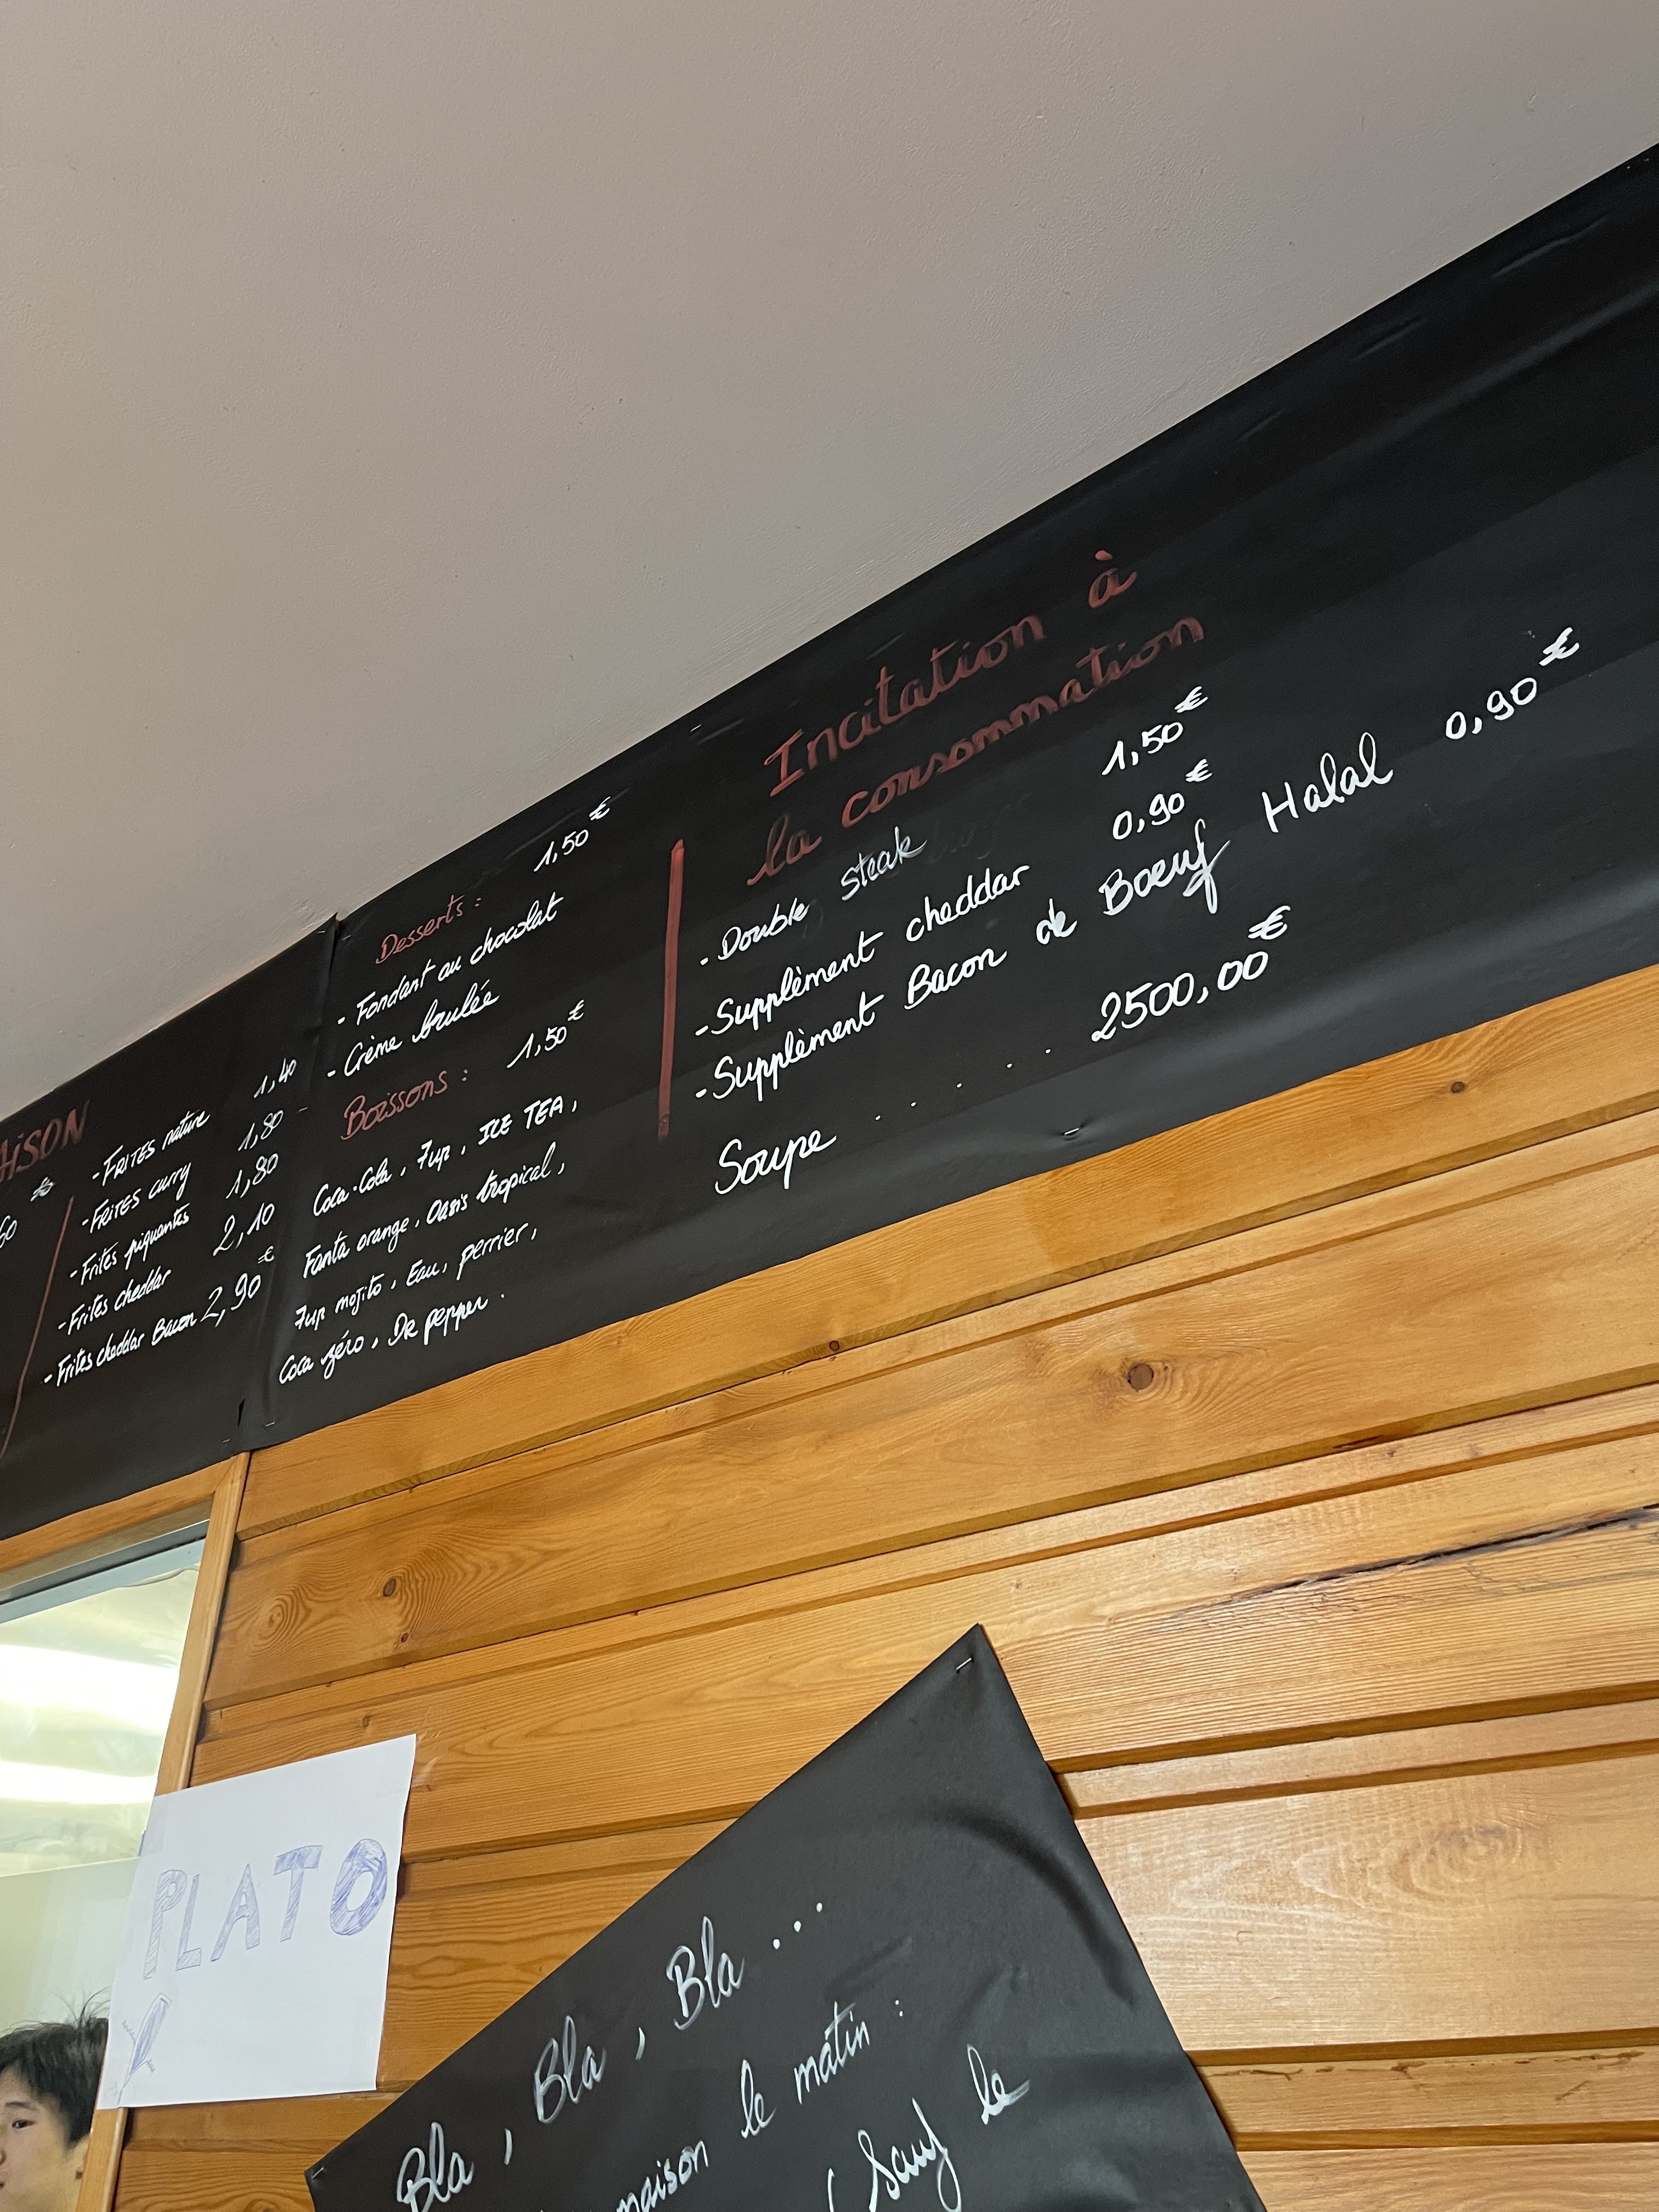 AISON
60 €
- FRITES nature 1,40
- FRITES curry 1,80
- Frites piquantes 1,80
- Frites cheddar 2,10
- Frites cheddar Bacon 2,90 €
Desserts : 1,50 €
- Fondant au chocolat
- Crème brulée
Boissons : 1,50 €
Coca-Cola, 7up, ICE TEA,
Fanta orange, Oasis tropical,
7up mojito, Eau, perrier,
Coca zéro, Dr pepper.
Incitation à
la consommation
- Double steak 1,50 €
- Supplément cheddar 0,90 €
- Supplément Bacon de Boeuf Halal 0,90 €
Soupe ..... 2500,00 €
PLATO
Bla, Bla, Bla ...
maison le matin :
(Sauf le